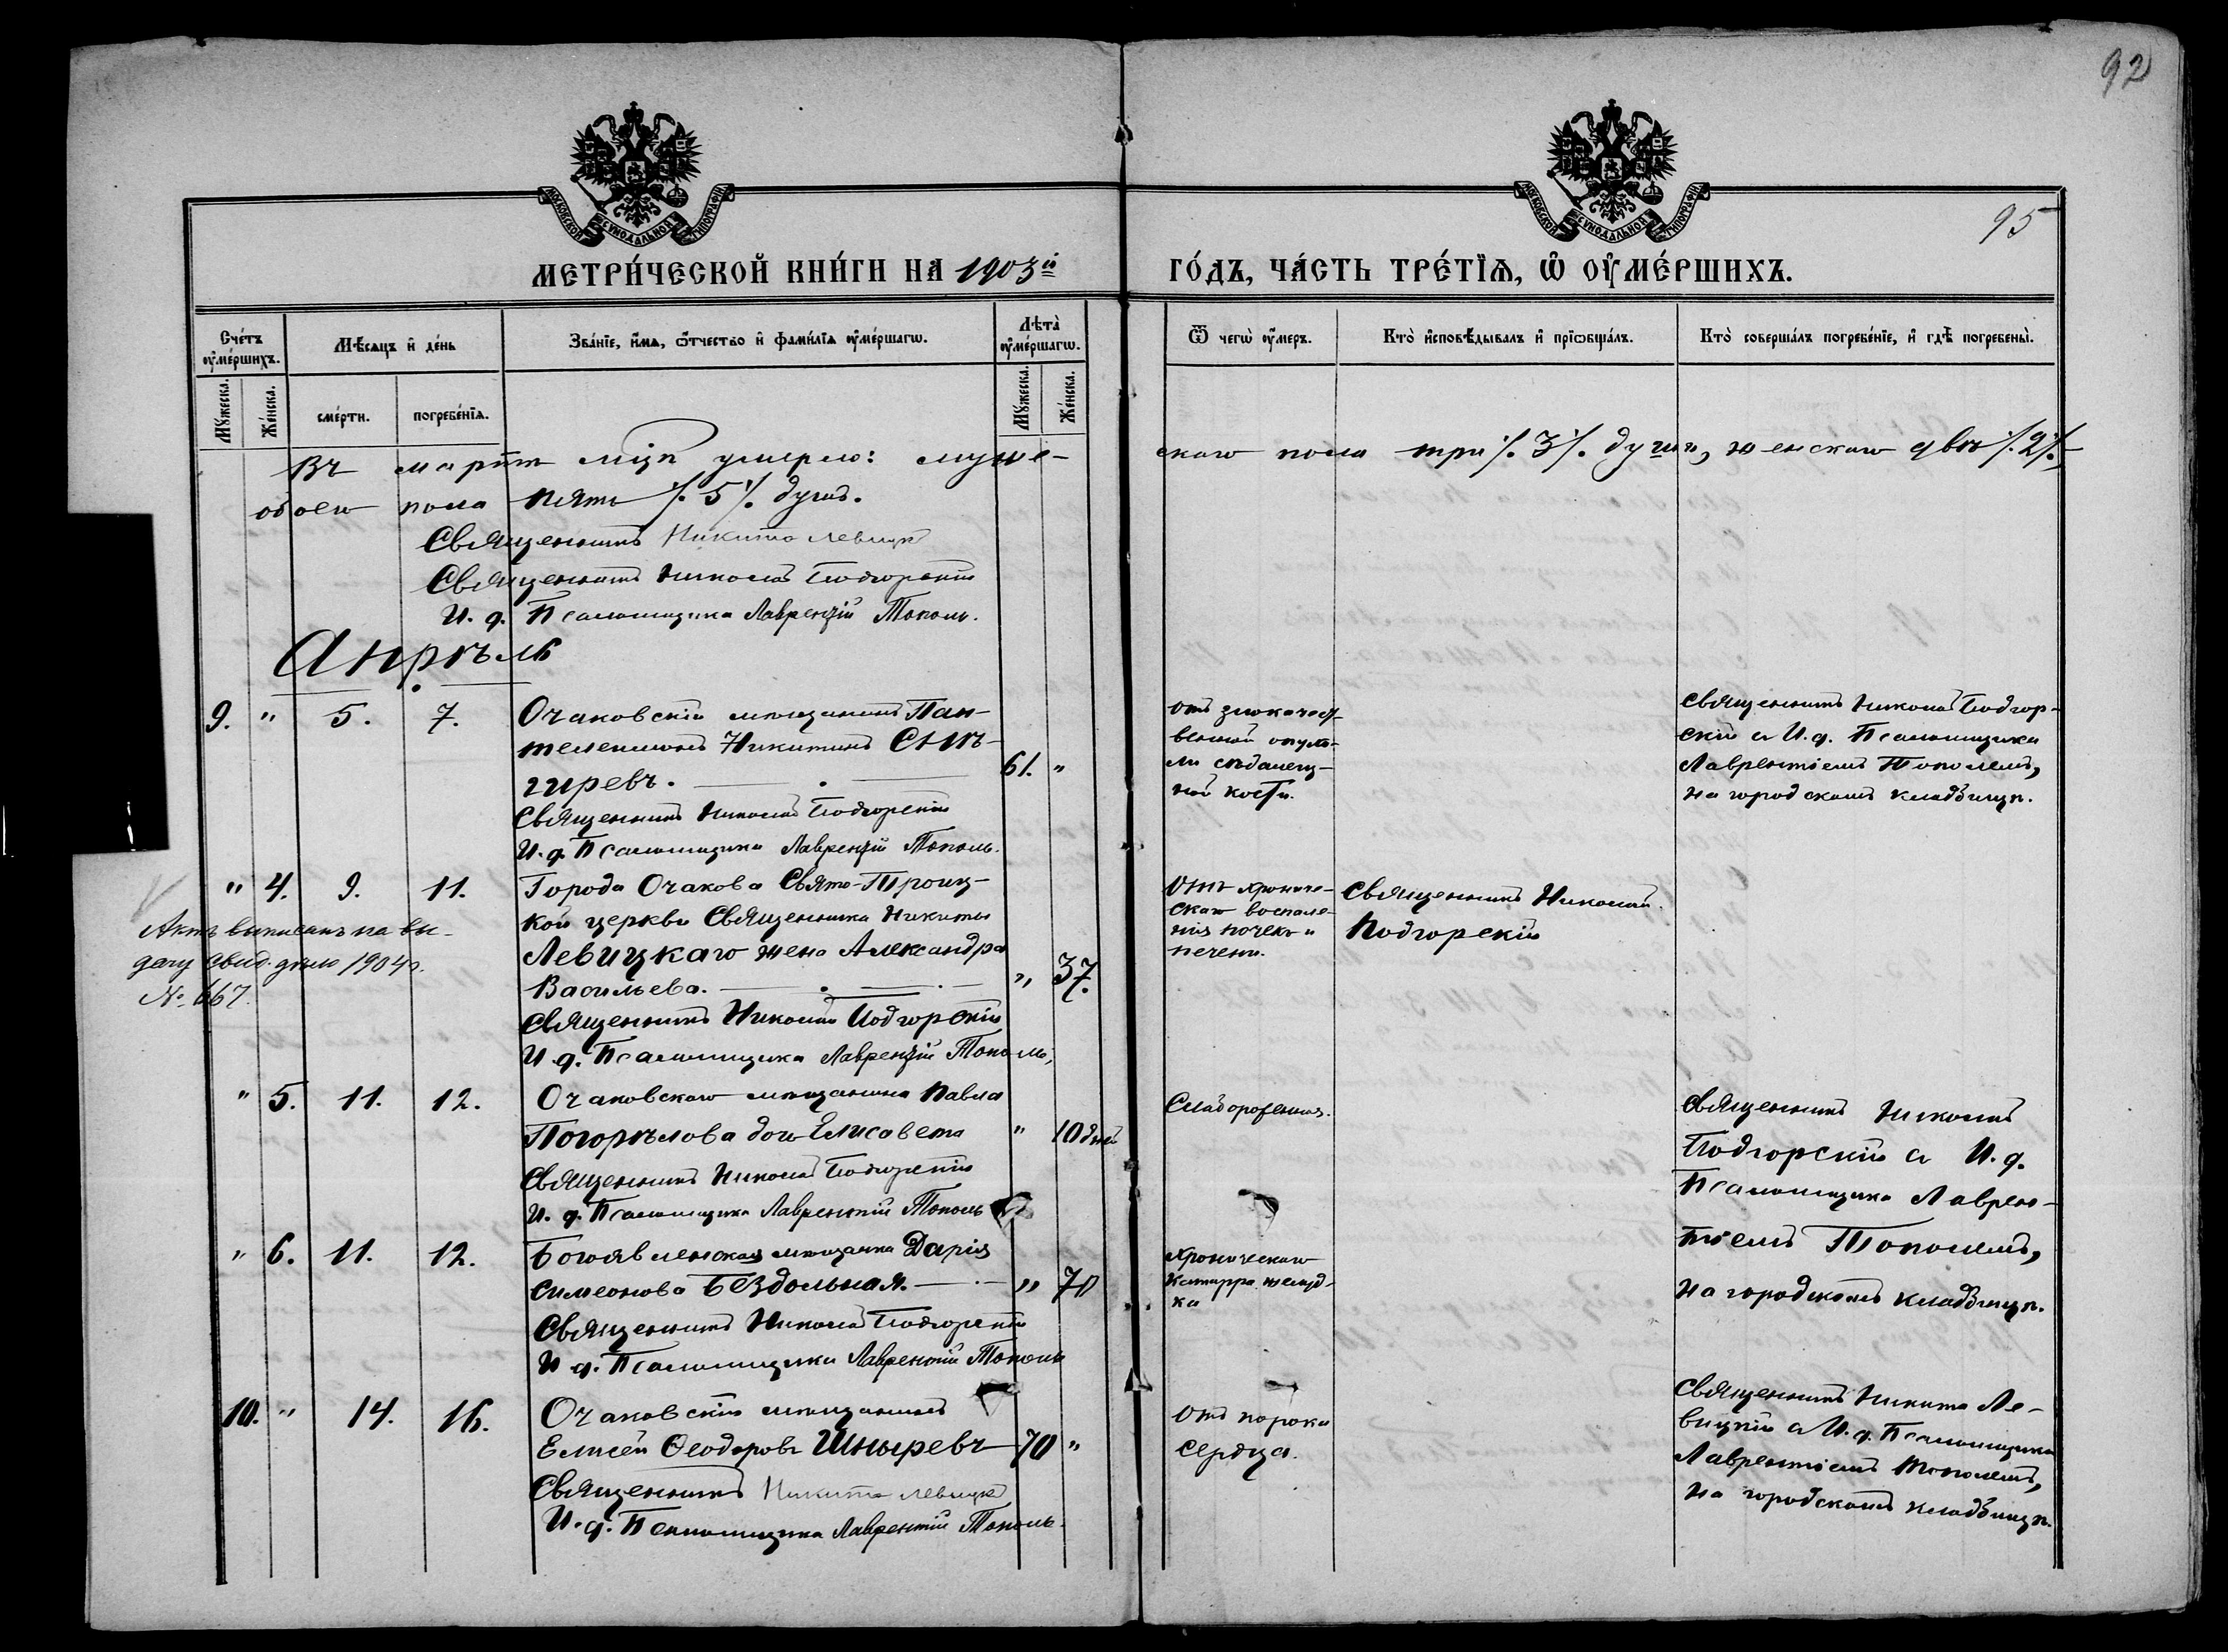 92
95
МОСКОВСКОЙ СѴНОДАЛЬНОЙ ТИПОГРАФІИ
МОСКОВСКОЙ СѴНОДАЛЬНОЙ ТИПОГРАФІИ
МЕТРИ́ЧЕСКОЙ КНИ́ГИ НА 1903й ГО́ДЪ, ЧА́СТЬ ТРЕ́ТІѦ, Ѡ҆ ОУ҆МЕ́РШИХЪ.
Сче́тъ оу҆ме́ршихъ.
Мꙋ́жеска.
Же́нска.
Мѣ́сѧцъ и҆ де́нь
сме́рти.
погребе́нїѧ.
Зва́нїе, и҆́мѧ, ѻ҆́тчество и҆ фами́лїѧ оу҆ме́ршагѡ.
Лѣ́та оу҆ме́ршагѡ.
Мꙋ́жеска.
Же́нска.
Ѿ чегѡ̀ оу҆́меръ.
Кто̀ и҆сповѣ́дывалъ и҆ прїѡбща́лъ.
Кто̀ соверша́лъ погребе́нїе, и҆ гдѣ̀ погребены̀.
Въ мартѣ мцѣ умерло: муже-скаго пола три /.3/. души, женскаго двѣ /.2/.
обоего пола пять /.5/. душъ.
Священникъ Никита Левицк
Священникъ Николай Подгорскій
И. д. Псаломщика Лаврентій Тополь.
Апрѣль
9. " 5. 7. Очаковскій мѣщанинъ Пан-
телеимонъ Никитинъ Снѣ-
гиревъ. 61. "
Священникъ Николай Подгорскій
И. д. Псаломщика Лаврентій Тополь.
отъ злокачест-
венной опухо-
ли сѣдалищ-
ной кости.
Священникъ Николай Подгор-
скій съ И. д. Псаломщика
Лаврентіемъ Тополемъ,
на городскомъ кладбищѣ.
" 4. 9. 11. Города Очакова Свято-Троиц-
кой церкви Священника Никиты
Левицкаго жена Александра
Васильева. " 37.
Священникъ Николай Подгорскій
И. д. Псаломщика Лаврентій Тополь,
Актъ выписанъ на вы-
дачу свид. дѣло 1904 г.
№ 667
Отъ хрониче-
скаго воспале-
нія почекъ и
печени.
Священникъ Николай
Подгорскій
" 5. 11. 12. Очаковскаго мѣщанина Павла
Погорѣлова дочь Елисавета " 10 дней
Священникъ Николай Подгорскій
И. д. Псаломщика Лаврентій Тополь
Слаборожденія.
Священникъ Николай
Подгорскій съ И. д.
Псаломщика Лаврен-
тіемъ Тополемъ,
на городскомъ кладбищѣ.
" 6. 11. 12. Богоявленская мѣщанка Дарія
Симеонова Бездольная. " 70
Священникъ Николай Подгорскій
И д. Псаломщика Лаврентій Тополь
Хроническаго
катарра желуд-
ка
10. " 14. 16. Очаковскій мѣщанинъ
Елисей Ѳеодоровъ Шныревъ 70 "
Священникъ Никита Левицк
И. д. Псаломщика Лаврентій Тополь.
Отъ порока
сердца.
Священникъ Никита Ле-
вицкій съ И. д. Псаломщика
Лаврентіемъ Тополемъ,
на городскомъ кладбищѣ.